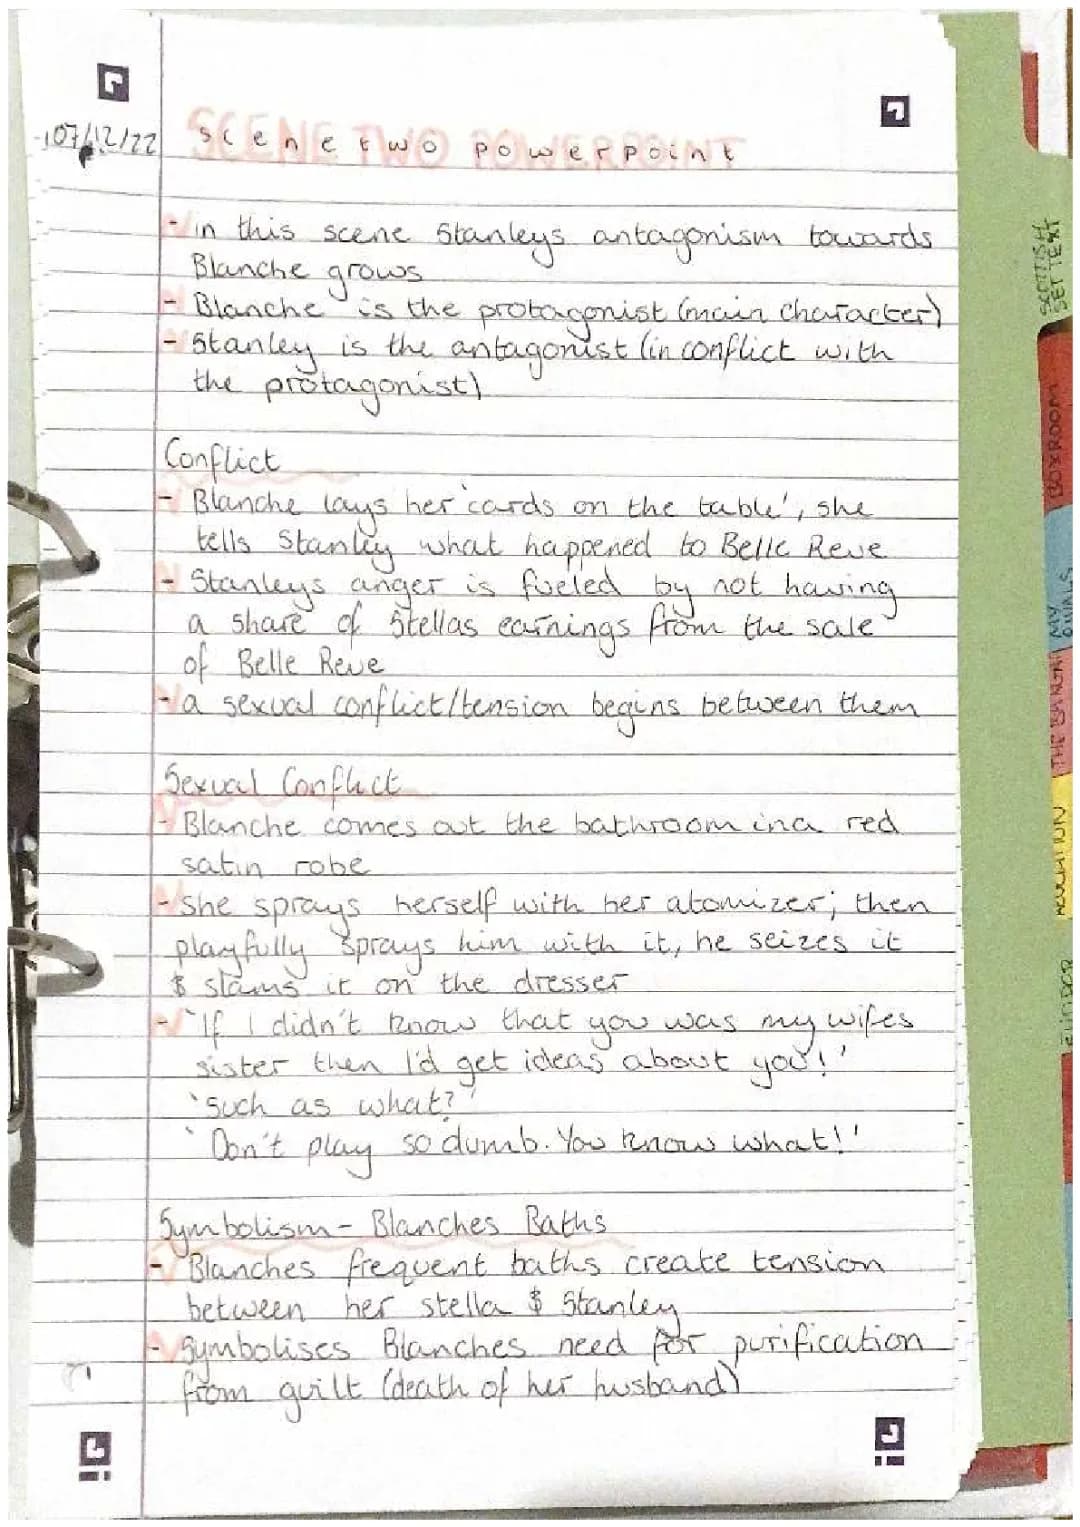 07/12/22
scene two powerpoint
- in this scene Stanleys antagonism towards
Blanche grows
- Blanche is the protagonist (main character)
- Stanley is the antagonist (in conflict with
the protagonist)
Conflict
- Blanche lays her 'cards on the table', she
tells Stanley what happened to Belle Reve
- Stanleys anger is fueled by not having
a share of Stellas earnings from the sale
of Belle Reve
- a sexual conflict/tension begins between them
Sexual Conflict
- Blanche comes out the bathroom in a red
satin robe
- she sprays herself with her atomizer; then
playfully sprays him with it, he seizes it
& slams it on the dresser
- 'If I didn't know that you was my wifes
sister then I'd get ideas about you!'
'such as what?'
'Don't play so dumb. You know what!'
Symbolism - Blanches Baths
- Blanches frequent baths create tension
between her stella & Stanley
- Symbolises Blanches need for purification
from guilt (death of her husband)
SCOTTISH
SET TEXT
BOXROOM
MY
RIVALS